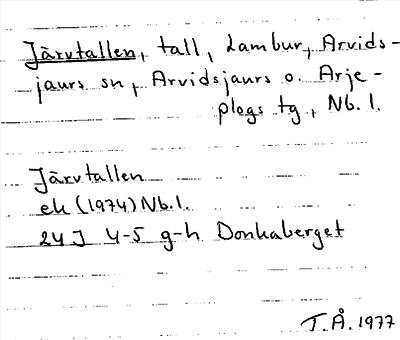 Järvtallen, tall, Lambur, Arvids-
jaurs sn, Arvidsjaurs o. Arje-
plogs tg, Nb. l.
Järvtallen
ek (1974) Nb. l.
24J 4-5 g-h Donkaberget
T.Å. 1977